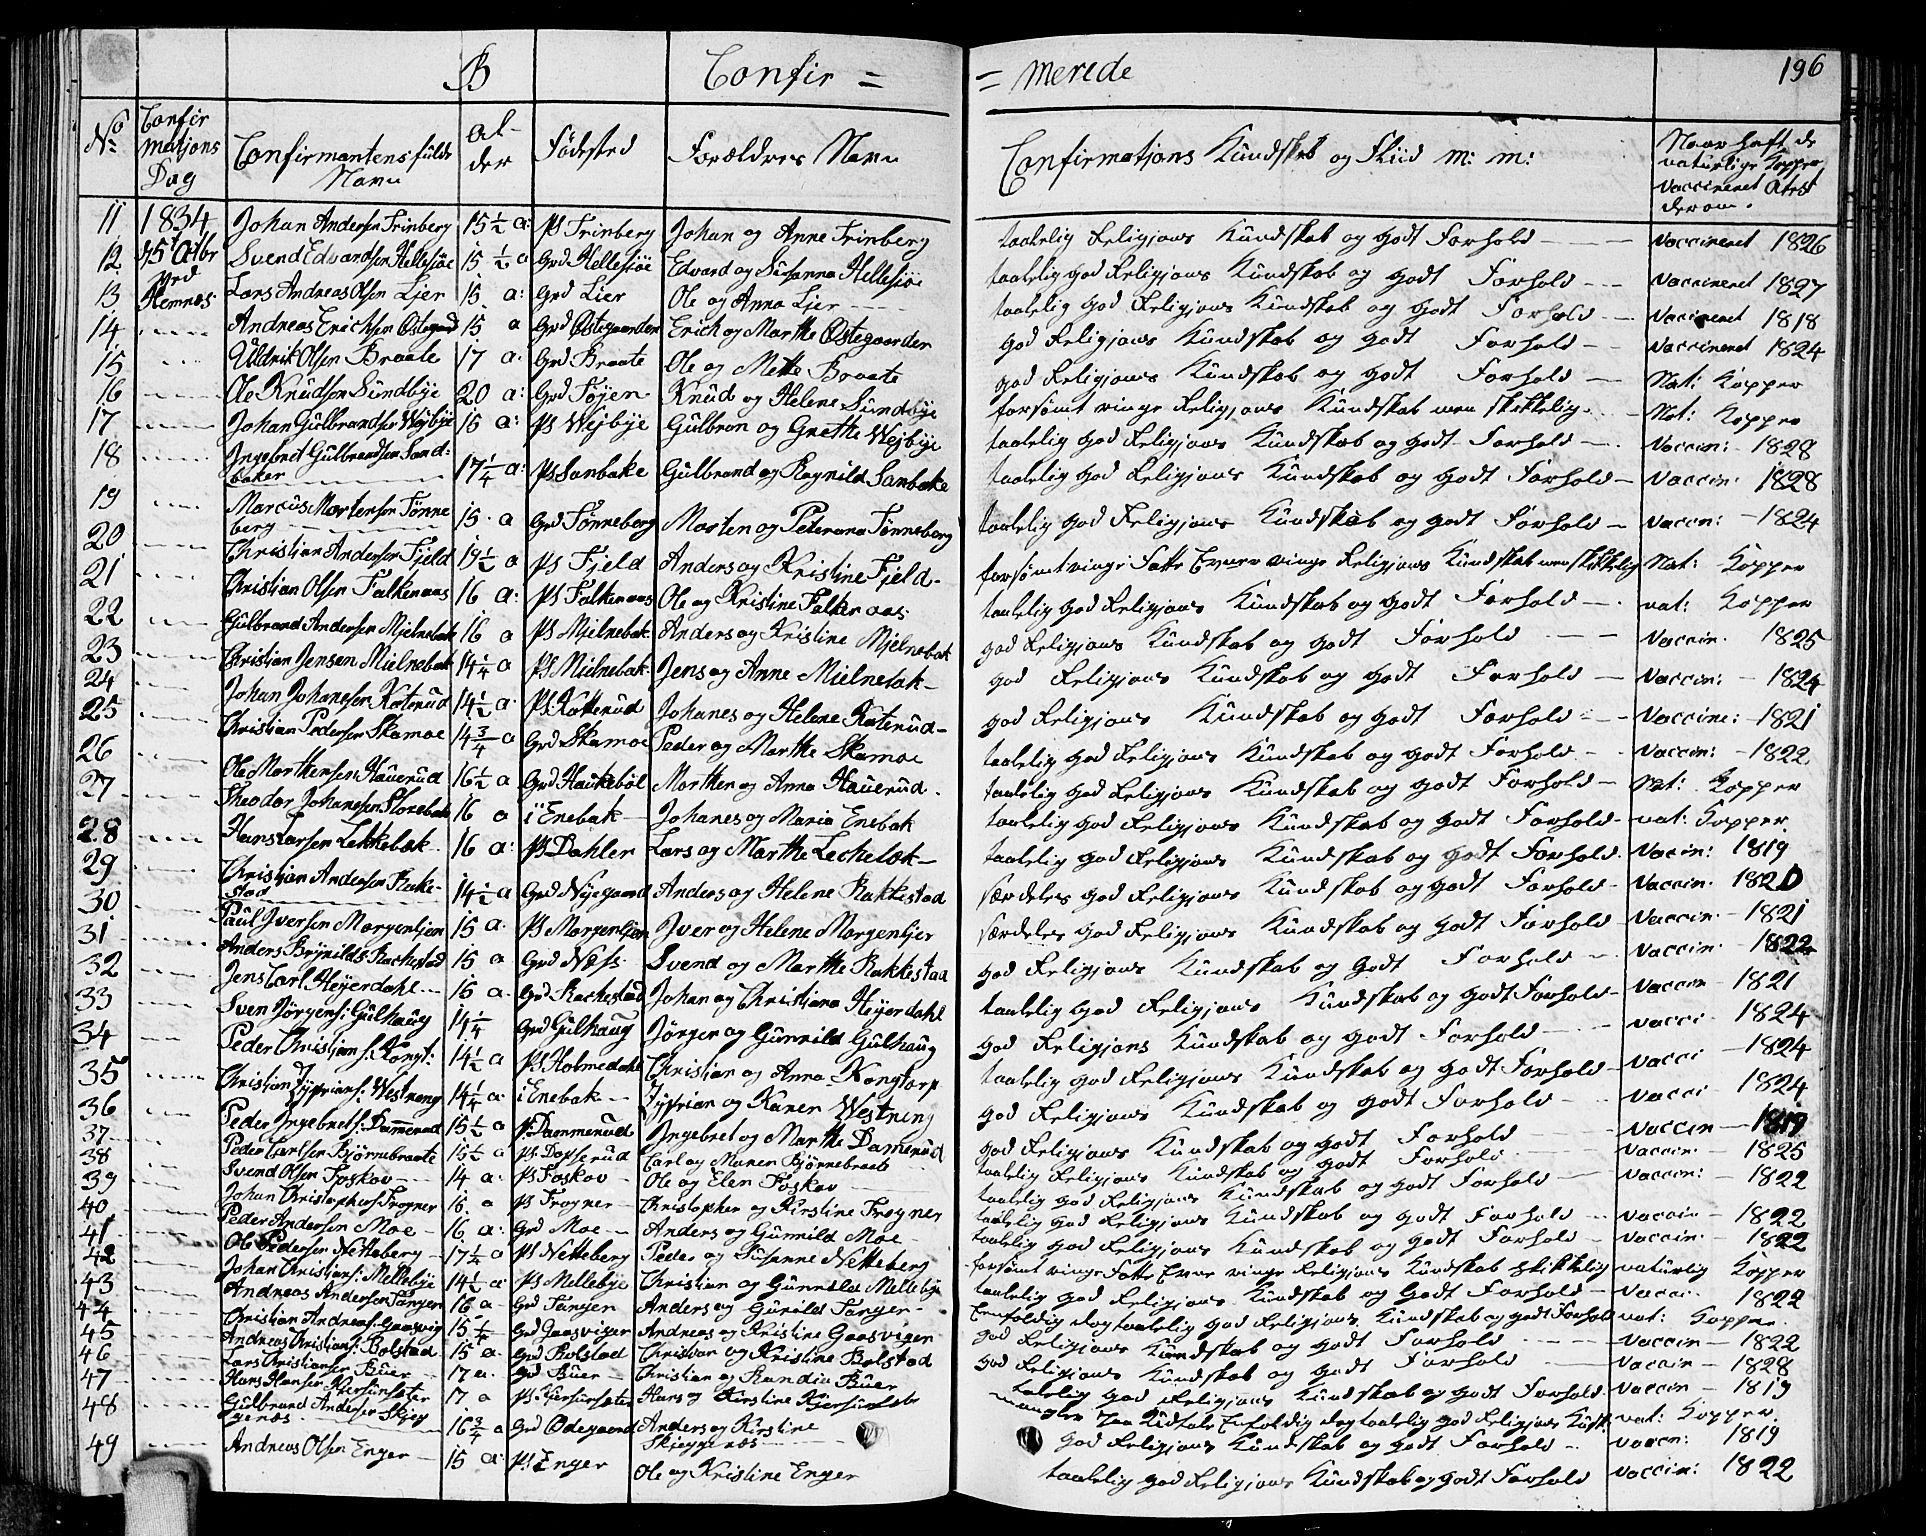 B Confir = = merede 196
No Confirmatjons Dag Confirmantens fulde Navn Alder Fødested Forældres Navn Confirmatjons Kündskab og Fliid m: m: Naar haft de natürlige Kopper vaccineret Atest derom.
11 1834 Johan Andersen Trinberg 15½ a: Ps Trinberg Johan og Anne Trinberg taalelig Religjons Kündskab og godt Forhold vaccineret 1826
12 Svend Edvardsen Hellesjøe 15½ a Grd Hellesjøe Edvard og Susanna Hellesjøe taalelig god Religjons Kündskab og godt Forhold vaccineret 1827
13 Hemnæs Lars Andreas Olsen Lier 15 a: Grd Lier Ole og Anna Lier taalelig god Religjons Kündskab og godt Forhold vaccineret 1818
14 Andreas Erichsen Østegaard 15 a Grd Østegaarden Erich og Marthe Østegaarden god Religjons Kündskab og godt Forhold vaccineret 1824
15 Üldrik Olsen Braate 17 a: Grd Braate Ole og Mette Braate god Religjons Kündskab og godt Forhold Nat: Kopper
16 Ole Knüdsen Sündbye 20 a: Grd Føjen Knüd og Helene Sündbye forsømt ringe Religjons Kündskab men skikkelig Nat: Kopper
17 Johan Gülbrandsen Wejbye 15 a: Ps Wejbye Gülbran og Grethe Wejbye taalelig god Religjons Kündskab og godt Forhold Vaccin: 1828
18 Ingebret Gülbrandsen Sandbaker 17¼ a: Ps Sanbake Gülbrand og Ragnild Sanbake taalelig god Religjons Kündskab og godt Forhold Vaccin: 1828
19 Marcus Mortensen Tønneberg 15 a Grd Tønneberg Morten og Peterana Tønneberg taalelig god Religjons Kündskab og godt Forhold vaccin: 1824
20 Christian Andersen Fjeld 19½ a Ps Fjeld Anders og Kristine Fjeld forsømt ringe Fatte Evner ringe Religjons Kündskab men skikkelig Nat: Kopper
21 Christian Olsen Falkenaas 16 a: Ps Falkenaas Ole og Kristine Falkenaas taalelig god Religjons Kündskab og godt Forhold nat: Kopper
22 Gülbrand Andersen Mjelnebak 16 a Ps Mjelnebak Anders og Kristine Mjelnebak god Religjons Kündskab og godt Forhold Vaccin. 1825
23 Christian Jensen Mielnebak 14¼ a Ps Mielnebak Jens og Anne Mielnebak god Religjons Kündskab og godt Forhold Vaccin: 1824
24 Johan Johanesen Katerud 14½ a: Ps Katterüd Johanes og Helene Katerüd god Religjons Kündskab og godt Forhold Vaccine: 1821
25 Christian Pedersen Skamoe 14¾ a Grd Skamoe Peder og Marthe Skamoe taalelig god Religjons Kündskab og godt Forhold Vaccin: 1822
26 Ole Marthensen Hauerüd 16½ a Grd Haukebøl Marthen og Anna Hauerüd taalelig god Religjons Kündskab og godt Forhold Nat: Kopper
27 Theodor Johanesen Slorebak 16 a i Enebak Johanes og Maria Enebak taalelig god Religjons Kündskab og godt Forhold nat: Kopper.
28 Hans Larsen Lekkebæk 16 a: Ps Dahler Lars og Marthe Lechebæk taalelig god Religjons Kündskab og godt Forhold Vacin: 1819
29 Christian Andersen Rakkestad 14½ a Grd Nyegaard Anders og Helene Rakkestad særdeles god Religjons Kündskab og godt Forhold Vaccin. 1820
30 Paul Iversen Morgenljer 15 a. Ps Morgenljer Iver og Helene Morgenljer særdeles god Religjons Kündskab og godt Forhold Vaccin. 1821
31 Anders Brynilds: Rachestad 15 a Grd Næss Svend og Marthe Rakkestad god Religjons Kündskab og godt Forhold Vaccin. 1822
32 Jens Carl Heyerdahl 15 a. Grd Rachestad Johan og Christiana Heyerdahl taalelig god Religjons Kündskab og godt Forhold vaccin 1821
33 Sven Jørgens: Gülhaug 14¼ Grd Gülhaug Jørgen og Günnild Gülhaug god Religjons Kündskab og godt Forhold vacci 1824
34 Peder Christjans: Kongt: 14½ a Ps Holmedahl Christian og Anna Kongtorp taalelig god Religjons Kündskab og godt Forhold vacci 1824
35 Christian Zyprians: Westreng 14¼ a: i Enebak Zyprian og Karen Westreng god Religjons Kündskab og godt Forhold vacci 1824
36 Peder Ingebrets: Dammerud 15½ a Ps Dammerüd Ingebret og Marthe Damerüd god Religjons Kündskab og godt Forhold vaccin 1819
37 Peder Carlsen Bjørnebraate 15½ a Ps Dopserüd Carl og Maren Bjørnebraate taalelig god Religjons Kündskab og godt Forhold vaccin. 1825
38 Svend Olsen Foskov 14 a: Ps Foskov Ole og Elen Foskov taalelig god Religjons Kündskab og godt Forhold vaccin: 1822
39 Johan Christophers: Frogner 16. a Ps Frogner Christopher og Kirstine Frogner taalelig god Religjons Kündskab og godt Forhold vaccin 1822
40 Peder Andersen Moe 16 a: Grd Moe Anders og Günnild Moe taalelig god Religjons Kündskab og godt Forhold vaccin. 1822
41 Ole Pedersen Netteberg 17¼ a Ps Netteberg Peder og Süsanne Netteberg forsømt ringe Fatte Evne ringe Religjons Kündskab skikkelig natürlig Kopper
42 Johan Christians: Mellebye 14½ a: Ps Mellebye Christian og Günnild Mellebye taalelig god Religjons Kündskab og godt Forhold Vaccin. 1822
43 Andreas Andersen Tanger 16 a Grd Tanger Anders og Günild Tanger Eenfoldig dog taalelig god Religjons Kündskab og godt Forhold nat: Kopper.
44 Christian Andreas: Gaasvig 15¼ Grd Gaasviger Andreas og Kristine Gaasviger god Religjons Kündskab og godt Forhold vaccin 1822
45 Andreas Christians: Bolstad 15 a. Grd Bolstad Christian og Kristine Bolstad god Religjons Kündskab og godt Forhold vacain 1828
46 Lars Christiansen Büer 17 a. Grd Büer Christian og Randia Büer taalelig god Religjons Kündskab og godt Forhold vaccin 1819
47 Hans Hansen Kjersünsæter 17 a Ps Kjersünsæter Hans og Kirstine Kjersünsæter mangler Taa Eenfoldig dog taalelig god Religjons Künsk: nat: Kopper.
48 Gülbrand Andersen Skjeggenæs 16¾ a Grd Ødegaard Anders og Kirstine Skjeggenæs god Religjons Kündskab og godt Forhold vaccn: 1819
49 Andreas Olsen Enger 15 a: Ps Enger Ole og Kristine Enger taalelig god Religjons Kündskab og godt Forhold vaccin: 1822